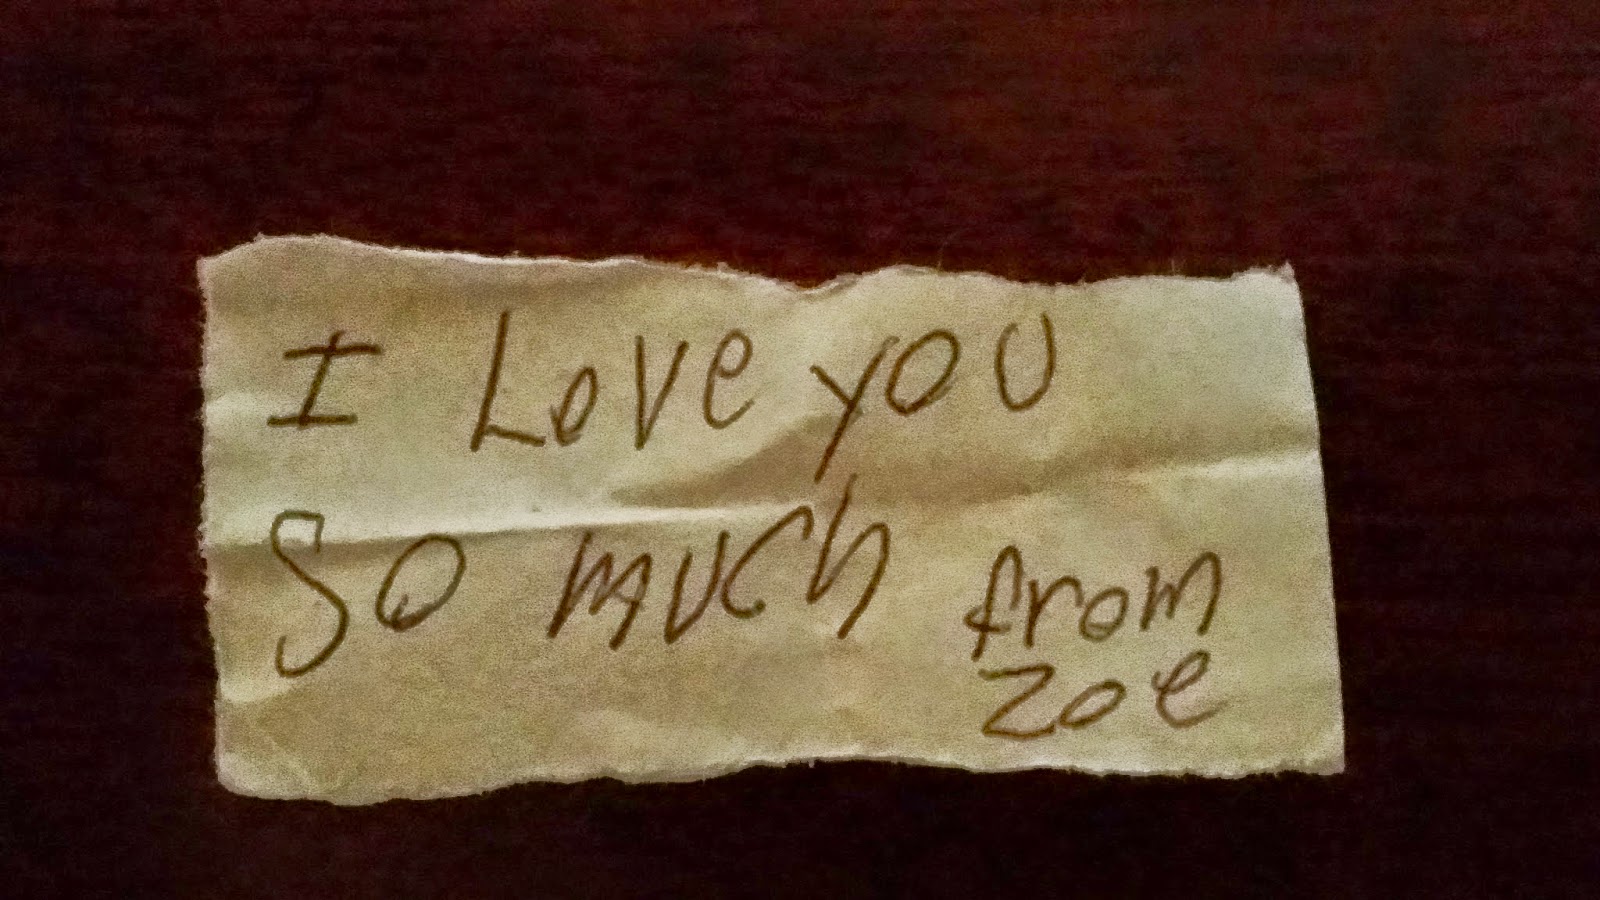 I Love you
So much from
zoe